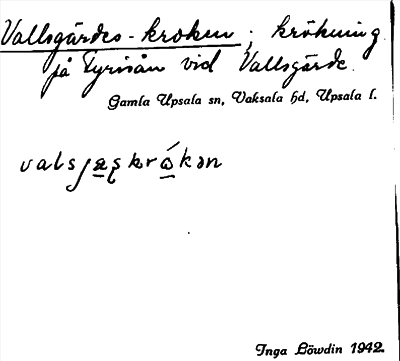 Vallsgärdes-kroken; krökning
på Fyrisån vid Vallsgärde.
Gamla Upsala sn, Vaksala hd, Upsala l.
valsjæʂkrókən
Inga Löwdin 1942.